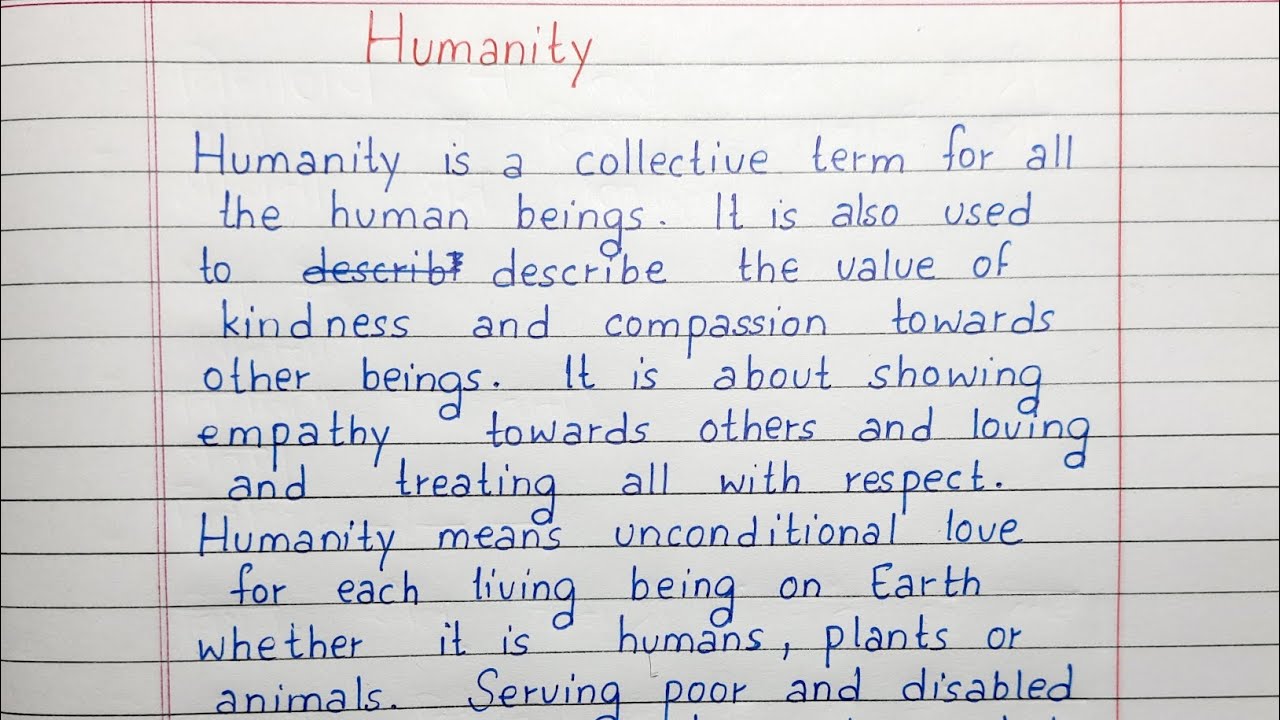 Humanity
Humanity is a collective term for all
the human beings. It is also used
to describ describe the value of
kindness and compassion towards
other beings. It is about showing
empathy towards others and loving
and treating all with respect.
Humanity means unconditional love
for each living being on Earth
whether it is humans, plants or
animals. Serving poor and disabled